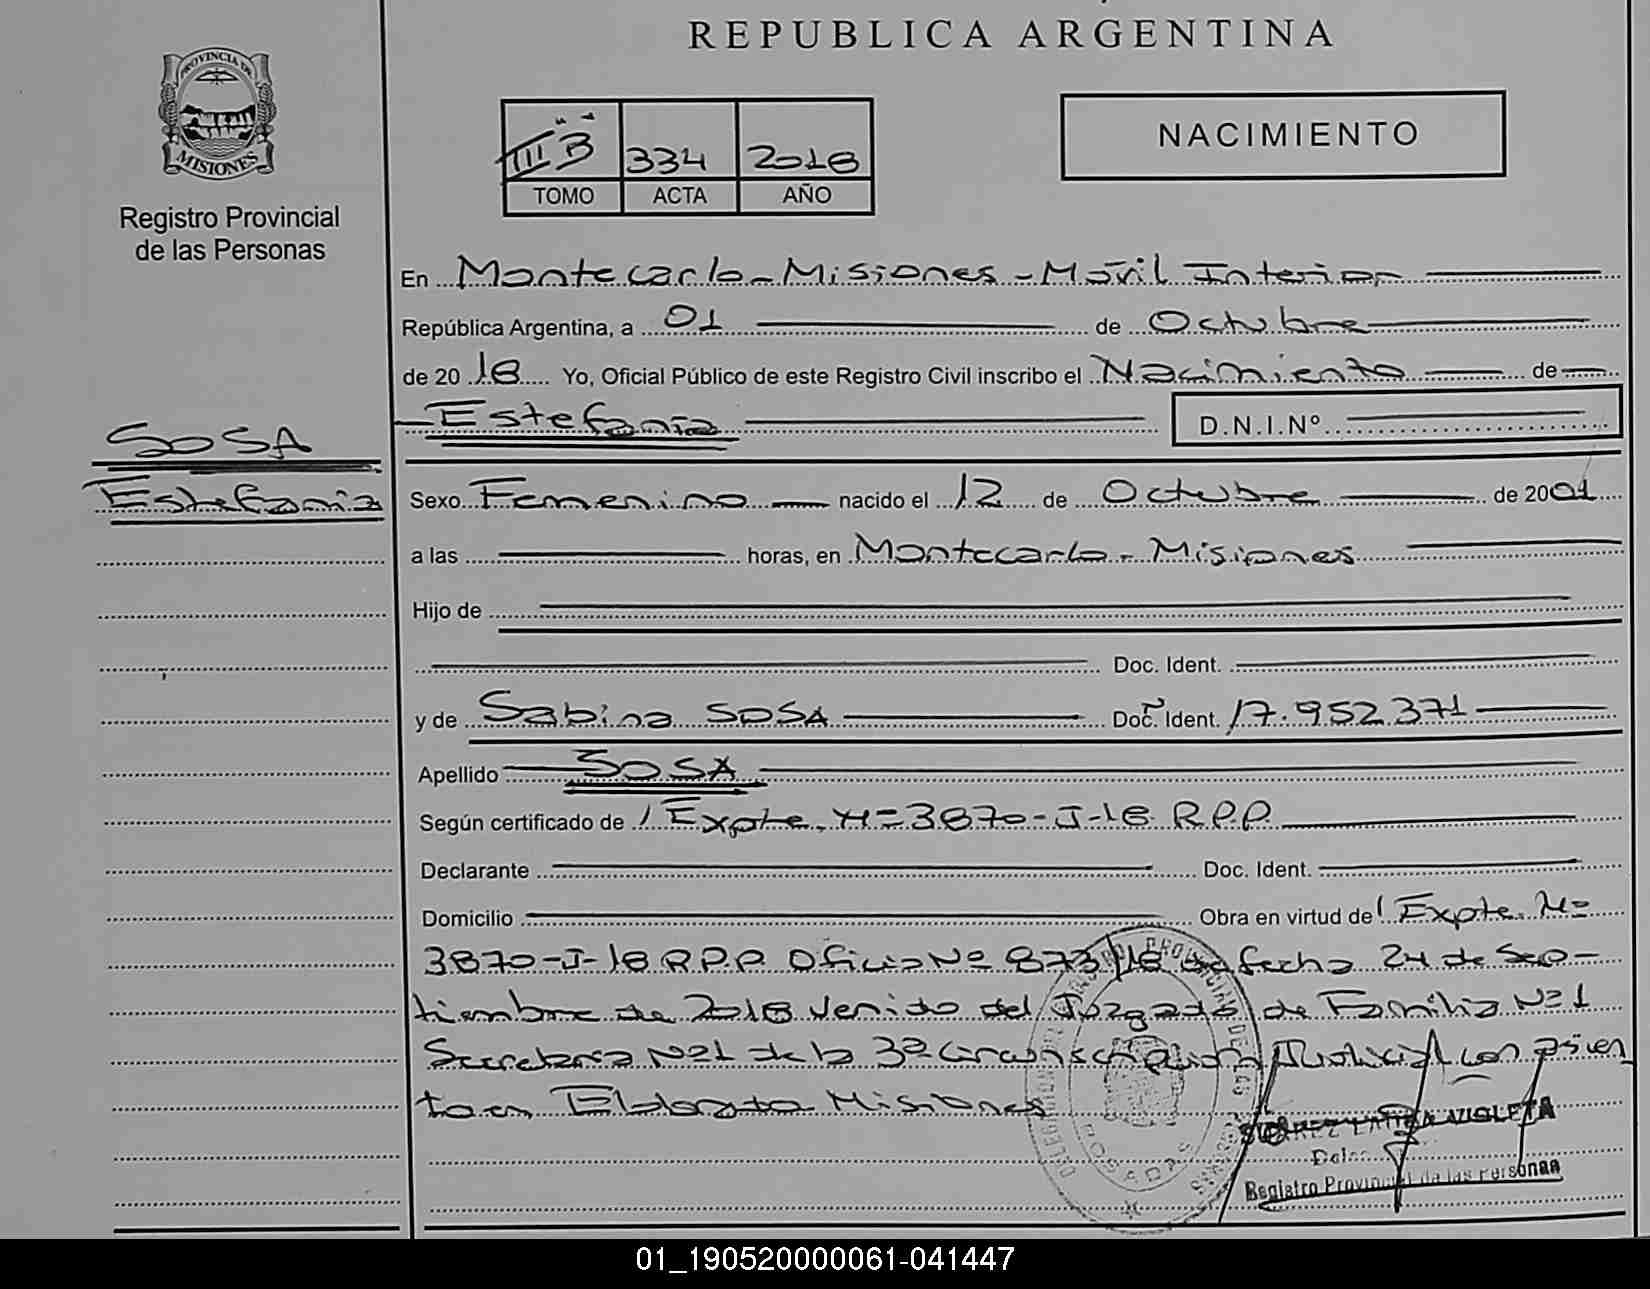 REPUBLICA ARGENTINA
PROVINCIA DE
MISIONES
Registro Provincial
de las Personas
III "B" 334 2018
TOMO ACTA AÑO
NACIMIENTO
En Montecarlo - Misiones - Móvil Interior
República Argentina, a 01 de Octubre
de 2018 Yo, Oficial Público de este Registro Civil inscribo el Nacimiento de
Estefania D.N.I.Nº
SOSA
Estefania
Sexo Femenino nacido el 12 de Octubre de 2001
a las horas, en Montecarlo - Misiones
Hijo de
Doc. Ident.
y de Sabina SOSA Doc. Ident. 17.952.371
Apellido SOSA
Según certificado de Expte. Nº 3870-J-18 R.P.P.
Declarante Doc. Ident.
Domicilio Obra en virtud de Expte. Nº
3870-J-18 R.P.P. Oficio Nº 873/18 de fecha 24 de Sep-
tiembre de 2018 venido del Juzgado de Familia Nº 1
Secretaria Nº 1 de la 3ª Circunscripción Judicial con asien
to en Eldorado Misiones
SUAREZ VIOLETA
Registro Provincial de las Personas
POSADAS
01_190520000061-041447